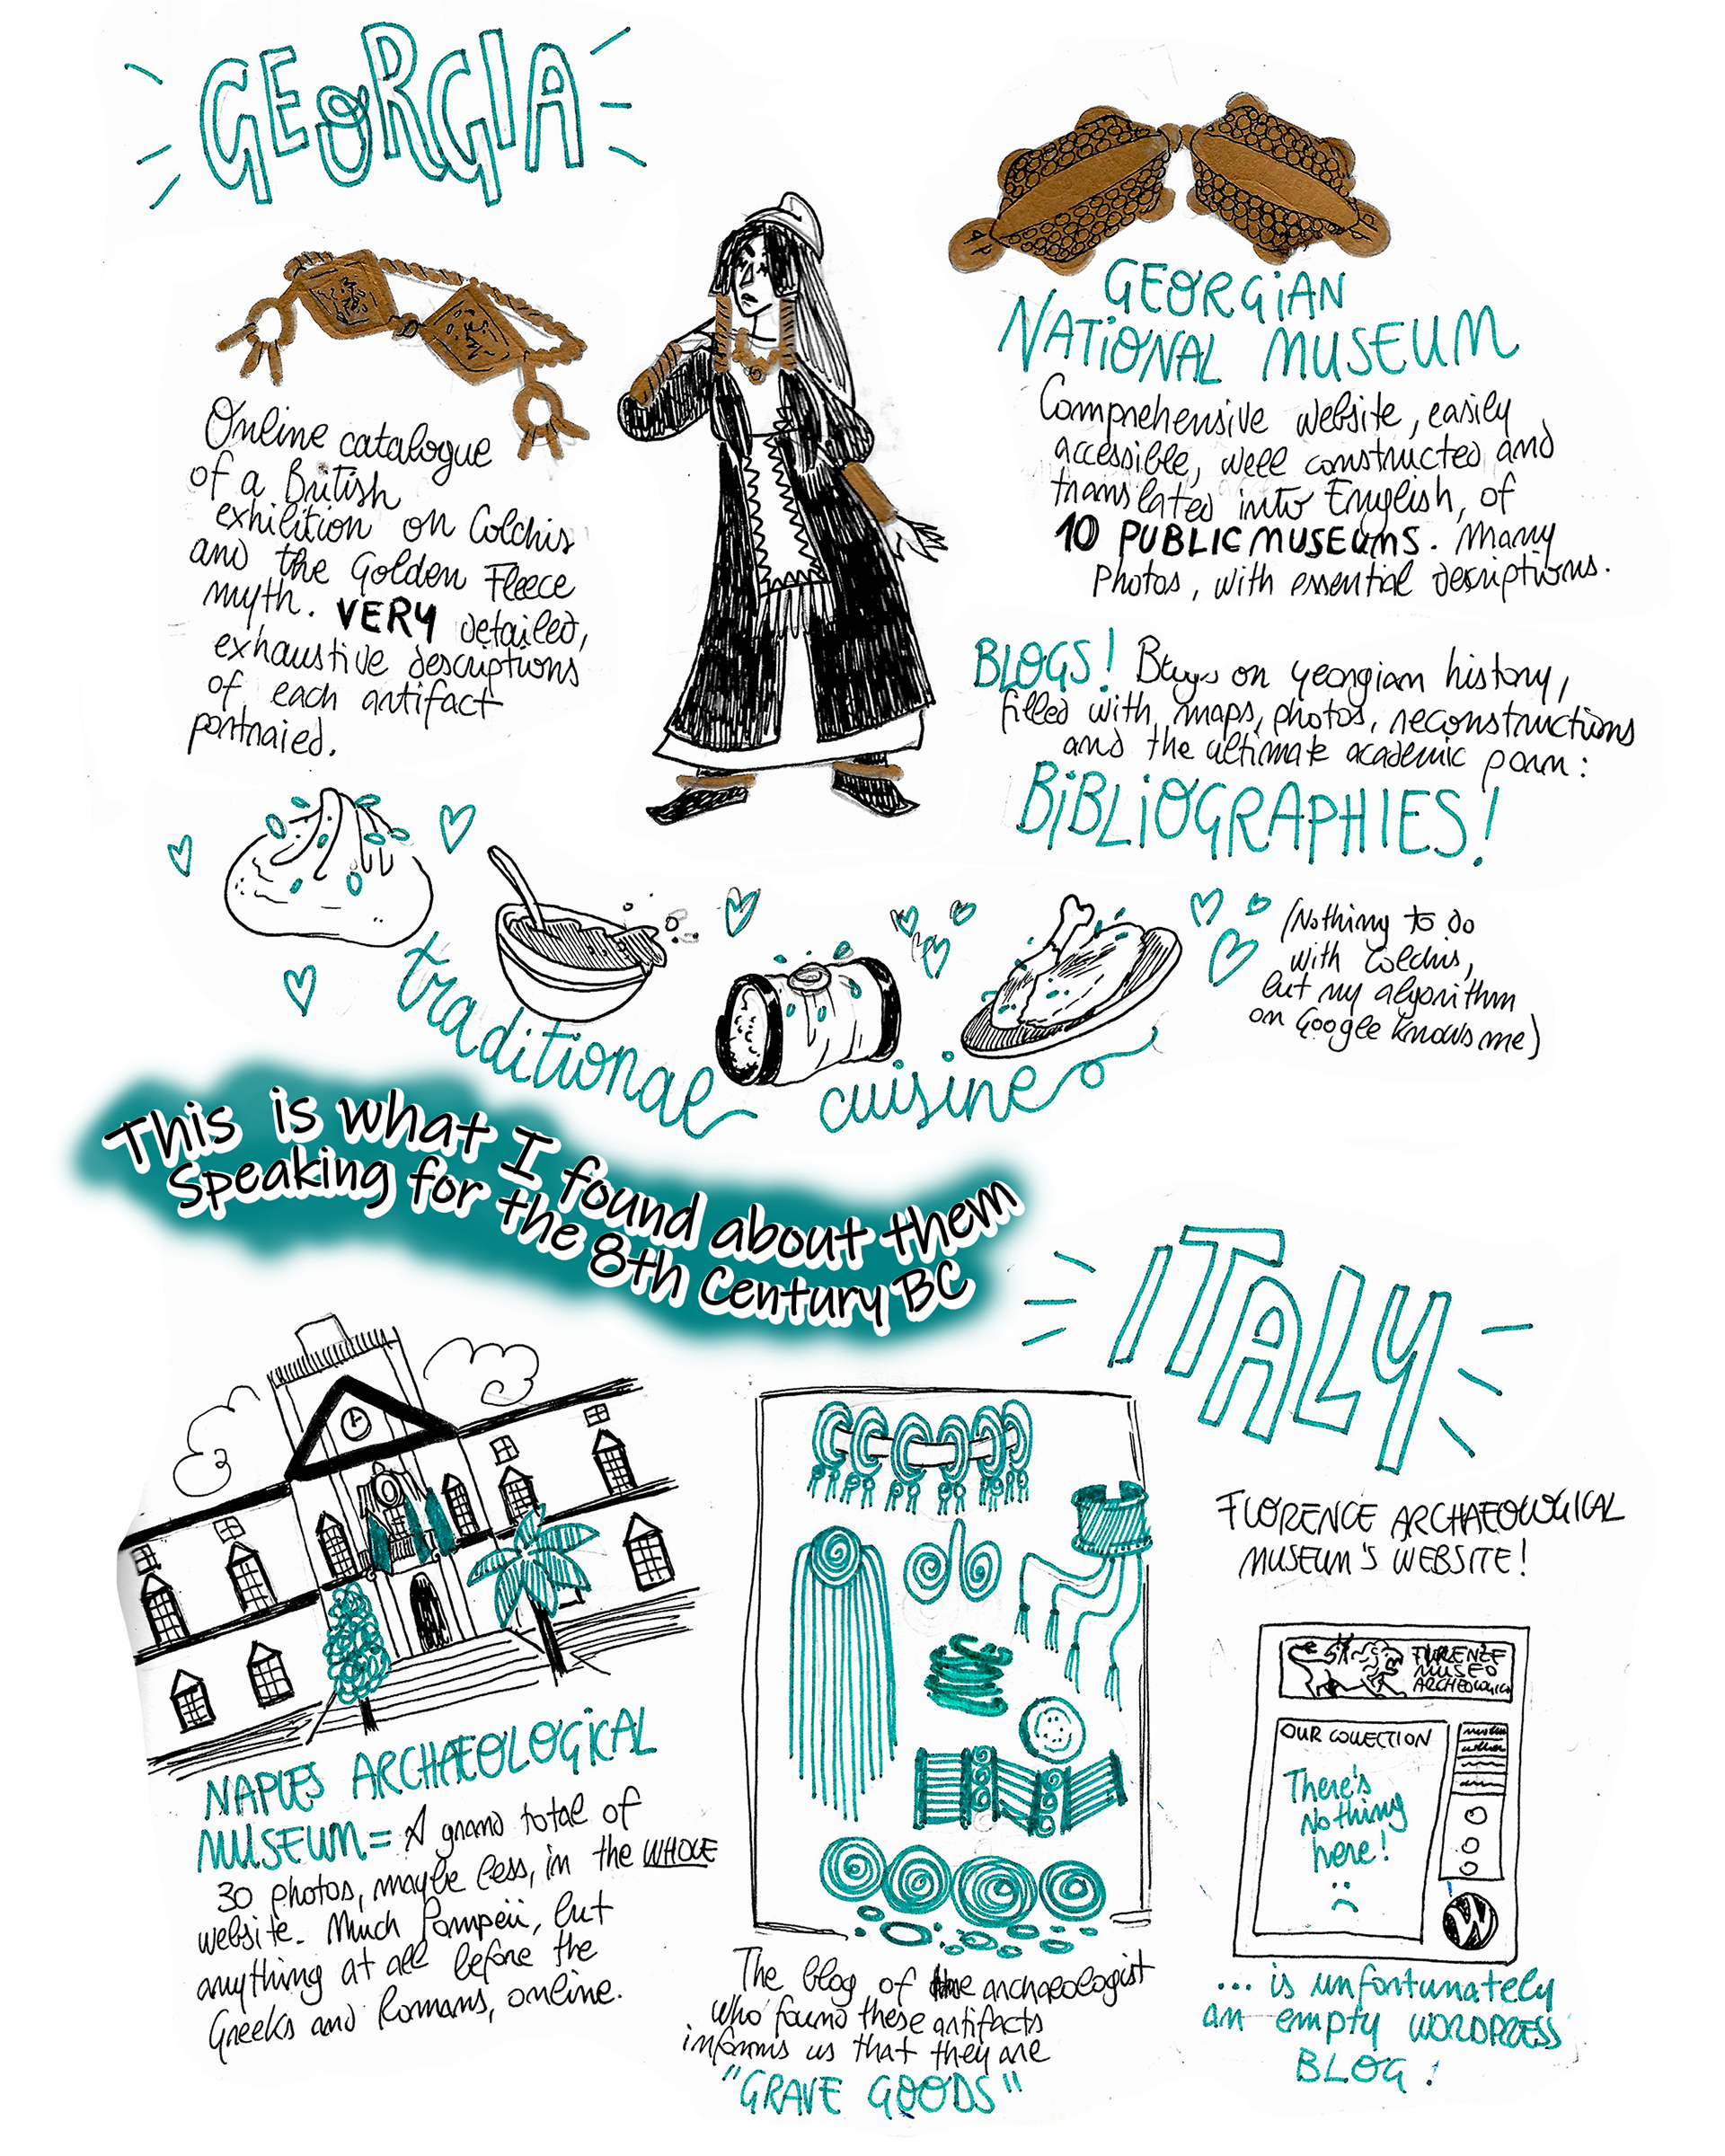 GEORGIA
Online catalogue
of a British
exhibition on Colchis
and the Golden Fleece
myth. VERY detailed,
exhaustive descriptions
of each artifact
portraied.
GEORGIAN
NATIONAL MUSEUM
Comprehensive website, easily
accessible, well constructed and
translated into English, of
10 PUBLIC MUSEUMS. Many
photos, with essential descriptions.
BLOGS! Blogs on georgian history,
filled with maps, photos, reconstructions
and the ultimate academic porn:
BIBLIOGRAPHIES!
traditional cuisine
(Nothing to do
with Colchis,
but my algorithm
on Google knows me)
This is what I found about them
Speaking for the 8th Century BC
ITALY
NAPLES ARCHAEOLOGICAL
MUSEUM = A grand total of
30 photos, maybe less, in the WHOLE
website. Much Pompeii, but
anything at all before the
Greeks and Romans, online.
The blog of the archaeologist
who found these artifacts
informs us that they are
"GRAVE GOODS"
FLORENCE ARCHAEOLOGICAL
MUSEUM'S WEBSITE!
FIRENZE
MUSEO
ARCHEOLOGICO
OUR COLLECTION
There's
nothing
here!
:(
W
... is unfortunately
an empty WORDPRESS
BLOG!